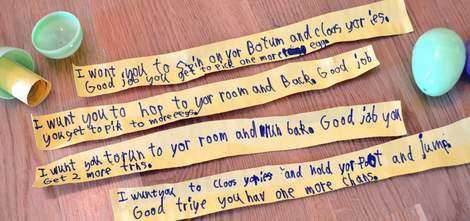 I wont you to Spin on yor Botum and cloos yor ies.
Good job you get to pick one more egg.
I want you to hop to yor room and Back. Good job
you get to pik to more eggs.
I wunt you to run to yor room and bak. Good job you
Get 2 more trns.
I wunt you to cloos yor ies and hold yor foot and Jump.
Good triye you hav one more chans.